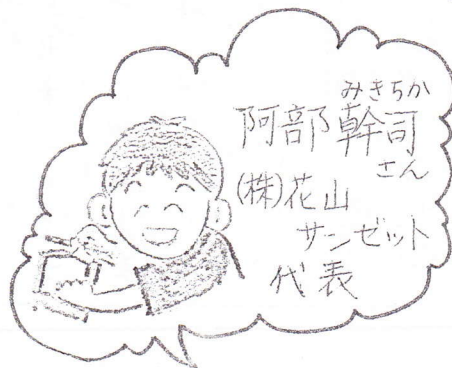 みきちか
阿部幹司
さん
(株)花山
サンゼット
代表